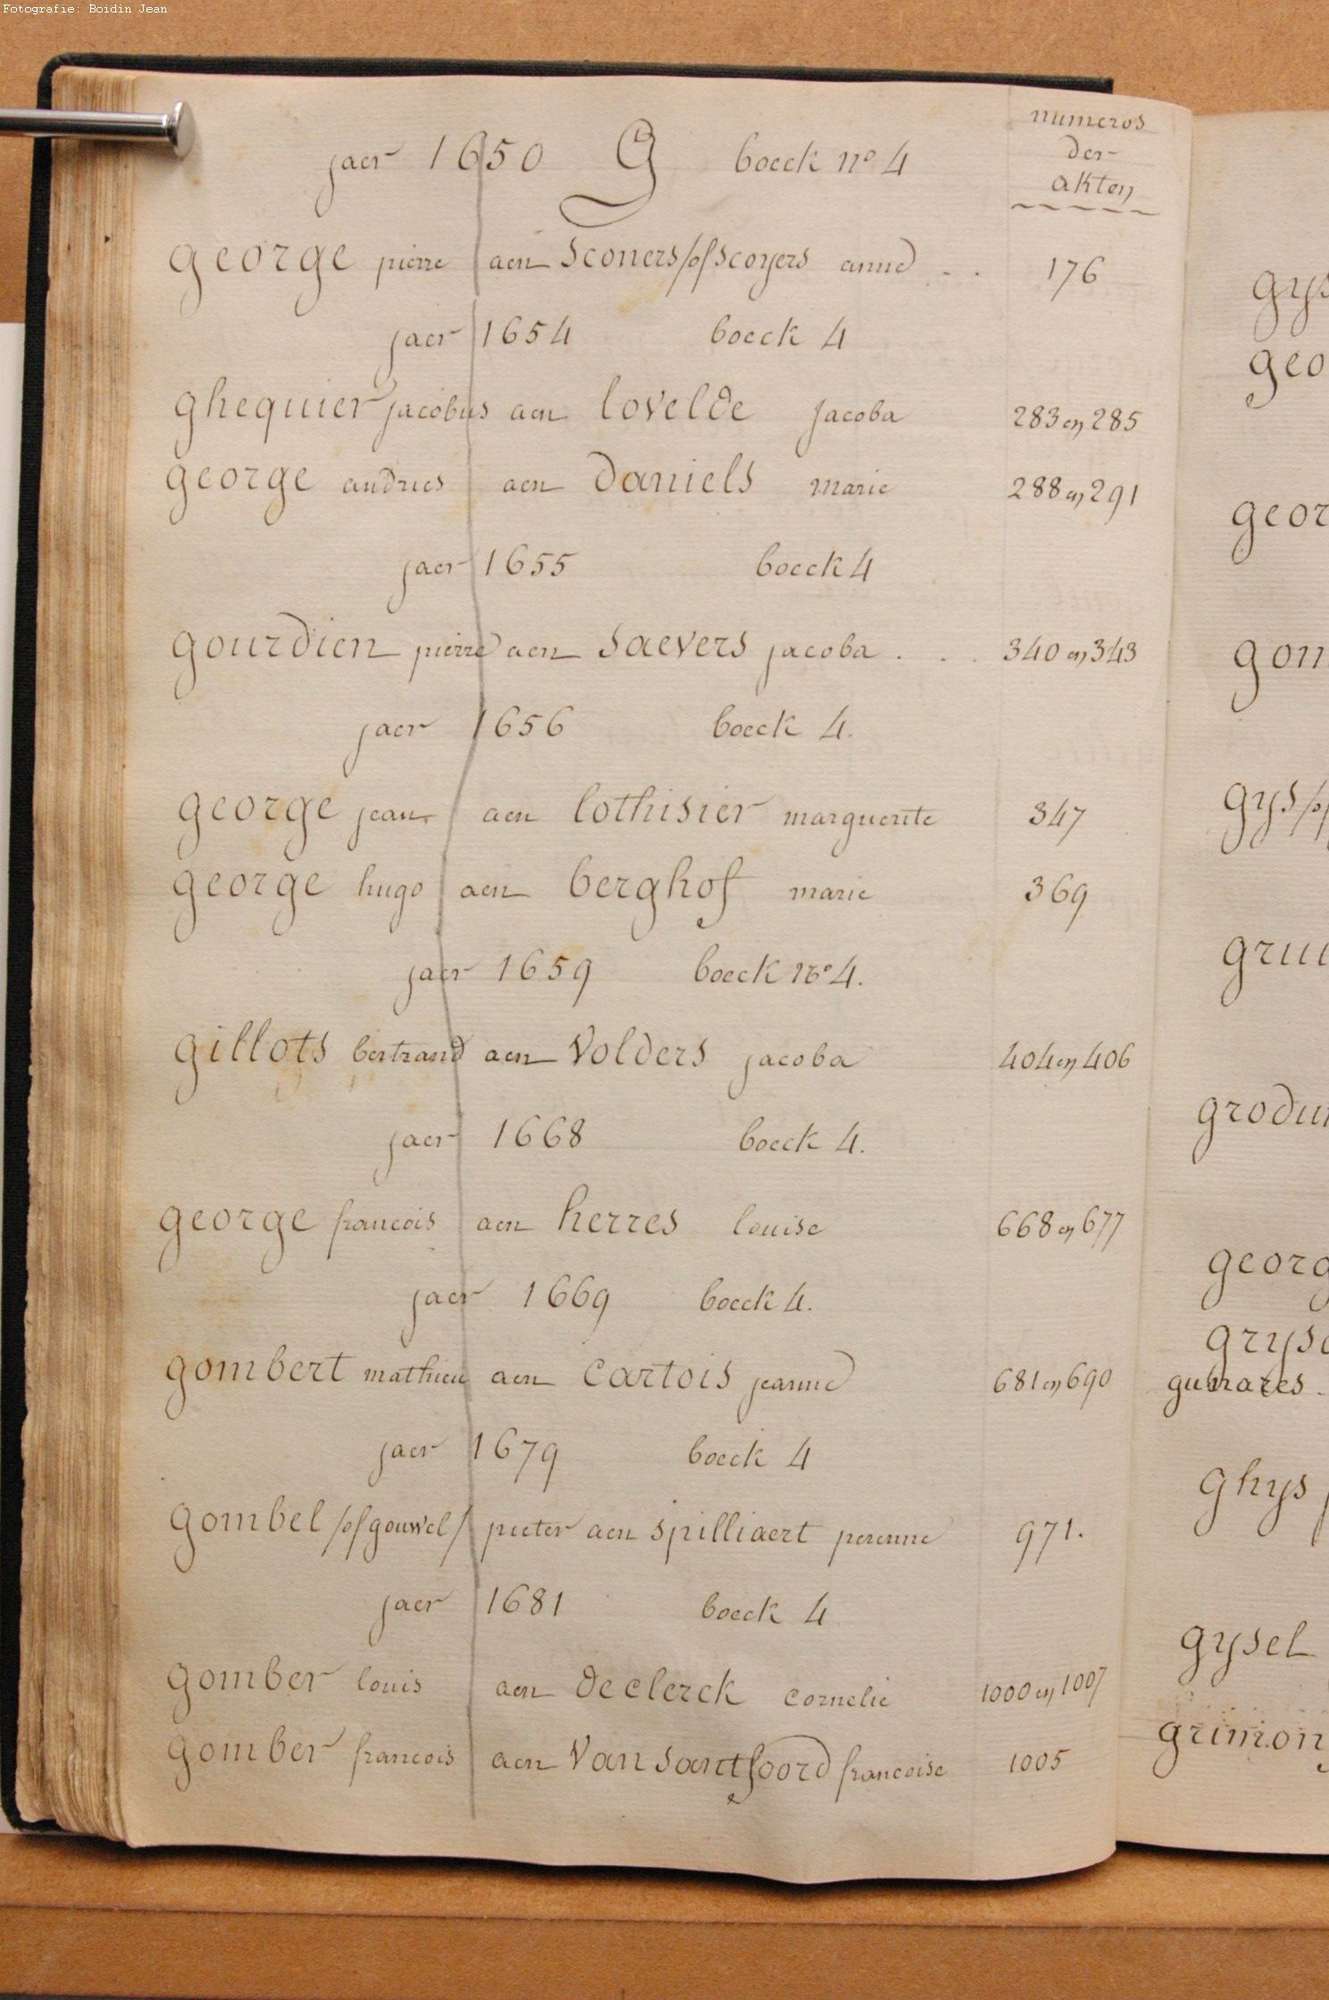 Fotografie: Boidin Jean
numeros
der
akten
jaer 1650 G boeck nº 4
george pierre aen Sconers /of scoyers anne . . 176
jaer 1654 boeck 4
ghequier jacobus aen lovelde jacoba 283 en 285
george andries aen Daniels marie 288 en 291
jaer 1655 boeck 4
gourdien pierre aen Saevers jacoba . . . 340 en 343
jaer 1656 boeck 4.
george jean aen lothisier marguerite 347
george hugo aen berghof marie 369
jaer 1659 boeck nº 4.
gillots bertrand aen Volders jacoba 404 en 406
jaer 1668 boeck 4.
george francois aen herres louise 668 en 677
jaer 1669 boeck 4.
gombert mathieu aen Cartois jeanne 681 en 690
jaer 1679 boeck 4
gombel /of gouwel/ pieter aen spilliaert peronne 971.
jaer 1681 boeck 4
gomber louis aen declerck cornelie 1000 en 1007
gomber francois aen Van Santfoord francoise 1005
gys
geo
geor
gon
gys /of
gruu
grodu
georg
gryse
ghys
gysel
grimon